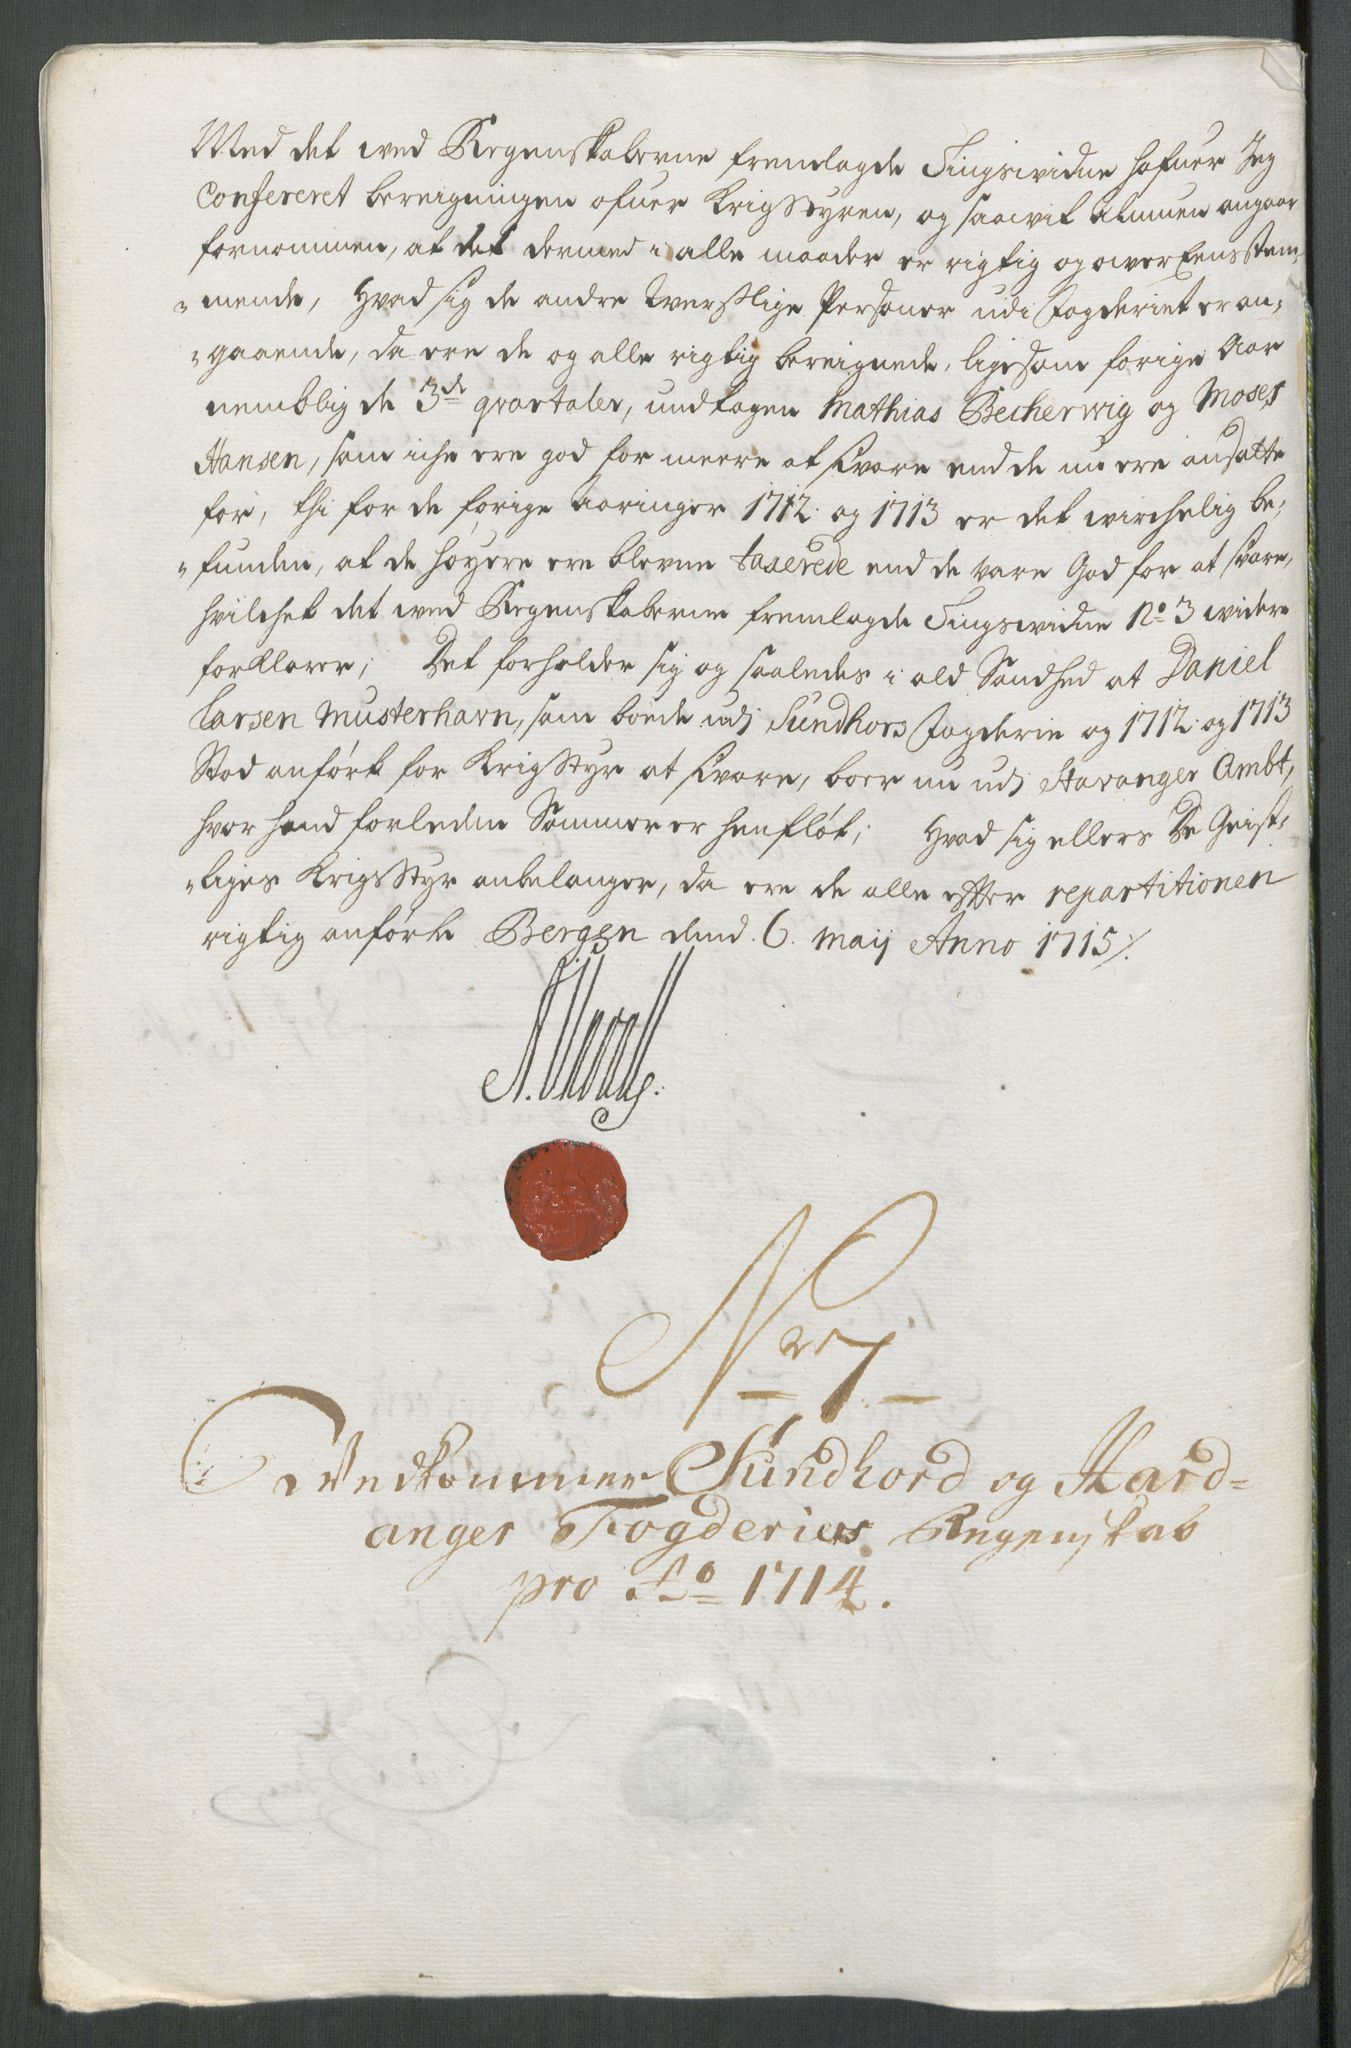 Med det wed Regenskaberne fremlagde Tingswidne hafuer Jeg
Confereret bereigningen ofuer Krigsstyren, og saawit almuen angaar
fornommen, at det dermed i alle maader er rigtig og over Eensstem-
mende, Hvad sig de andre Verslige Personer udi Fogderiet er an-
gaaende, da ere de og alle rigtig bereignede, ligesom forige Aar
nemblig de 3de qvartaler, undtagen Mathias Becherwig og Moses
Hansen, som iche ere god for meere at svare end de nu ere ansatte
for, thi for de forige aaringer 1712. og 1713 er det wirchelig be-
funden, at de høyere ere blevne taxerede end de vare God for at svare,
hvilchet det wed Regenskaberne fremlagde Tingswidne No 3 widere
forklarer; Det forholder sig og saaledes i ald Sandhed at Daniel
Larsen Musterhavn, som boede udj Sundhors Fogderie og 1712. og 1713
Stod anført for Krigsstyr at svare, boer nu udj Stavanger Ambt,
hvor hand forleden Sommer er henfløt; Hvad sig ellers De Geist-
liges Krigsstyr anbelanger, da ere de alle efter repartitionen
rigtig anførte Bergen dend. 6. Maij Anno 1715 /.
Nr 7
Vedkommer Sundhord og Hard-
anger Fogderies Regenskab
pro Ao 1714.